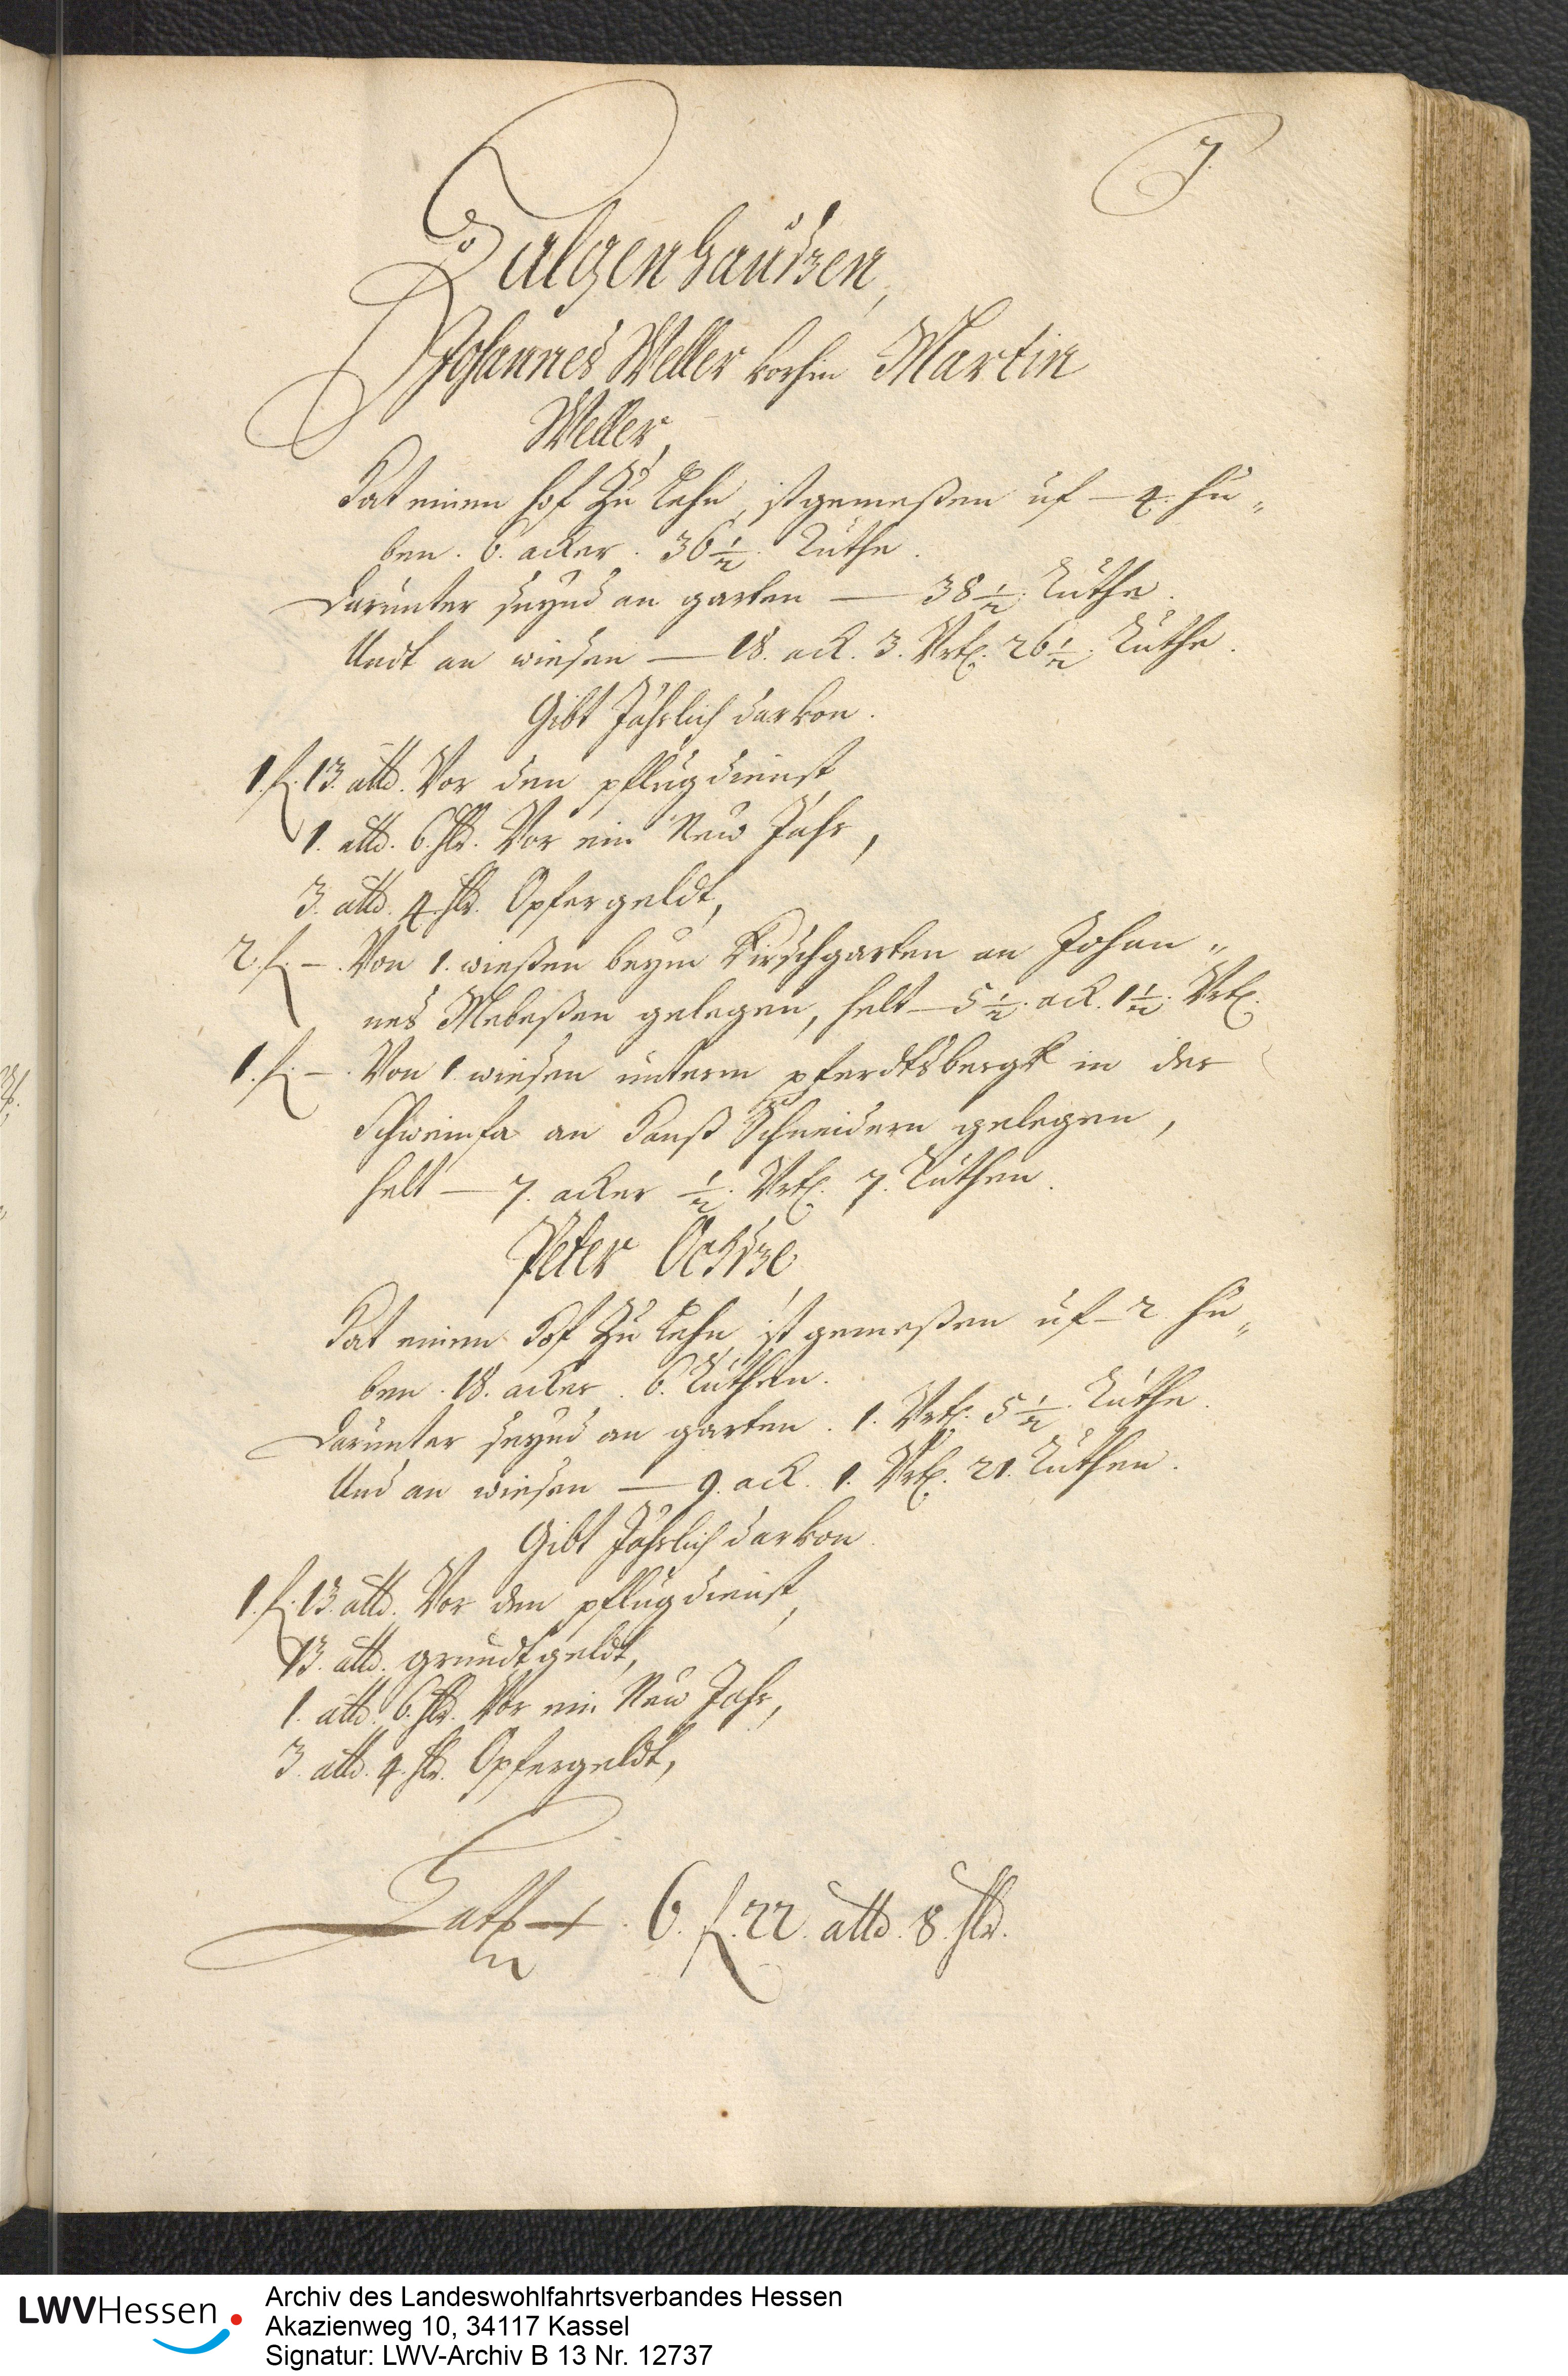 7.
Zulgenhaußen,
Johannes Weller vorhin Martin
Weller,
Hat einen hof zu Lehn, ist gemeßen uf – 4. hu„
ben. 6. acker. 36 1/2. Ruthe.
Darunter seynd an garten — 38 1/2. Ruthe.
Undt an wiesen — 18. ack. 3. Vrtl. 26 1/2. Ruthe.
Gibt Jährlich darvon.
1. fl. 13. alb. Vor den pflugdienst,
1. alb. 6. hlr. Vor ein New Jahr,
3. alb. 4. hlr. Opfergeldt,
2. fl. – . Von 1. wießen beym Kirschgarten an Johan„
nes gelegen, helt – 5 1/2. ack. 1 1/2. Vrtl.
1. fl. – . Von 1. wiesen unterm pferdtsbergk in der
an Hanß Schneidern gelegen,
helt – 7. acker 1/2. Vrtl. 7. Ruthen.
Peter Ochße,
Hat einen Hof zu Lehn, ist gemeßen uf – 2. hu„
ben. 18. acker. 6. Ruthen.
Darunter seynd an garten. 1. Vrtl. 5 1/2. Ruthe.
Und an wiesen — 9. ack. 1. Vrtl. 21. Ruthen.
Gibt Jährlich darvon.
1. fl. 13. alb. Vor den pflugdienst,
13. alb. grundtgeldt,
1. alb. 6. hlr. Vor ein New Jahr,
3. alb. 4. hlr. Opfergeldt,
6. fl. 22. alb. 8. hlr.
LWVHessen
Archiv des Landeswohlfahrtsverbandes Hessen
Akazienweg 10, 34117 Kassel
Signatur: LWV-Archiv B 13 Nr. 12737